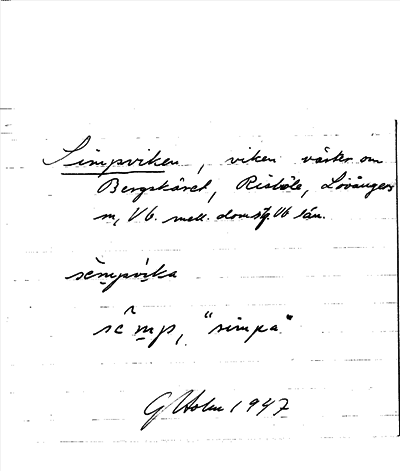 Simpviken, viken väster om
Bergskäret, Risböle, Lövångers
sn, Vb. mell. doms. Vb län.
sèmpvika
sêmp, "simpa"
G Holm 1947